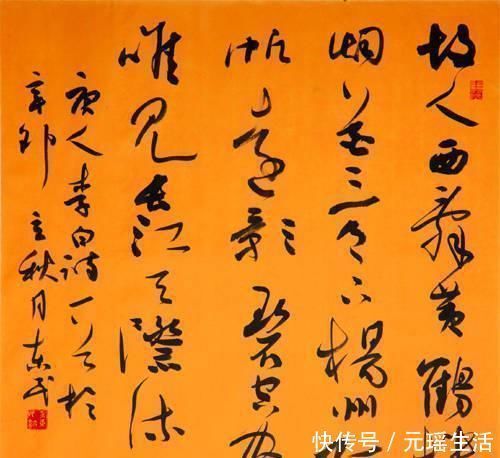 故人西辞黄鹤楼
烟花三月下揚州
帆遠影碧空尽
唯见長江天際流
唐人李白詩一首於
辛卯立秋月东民
快传号／元瑶生活